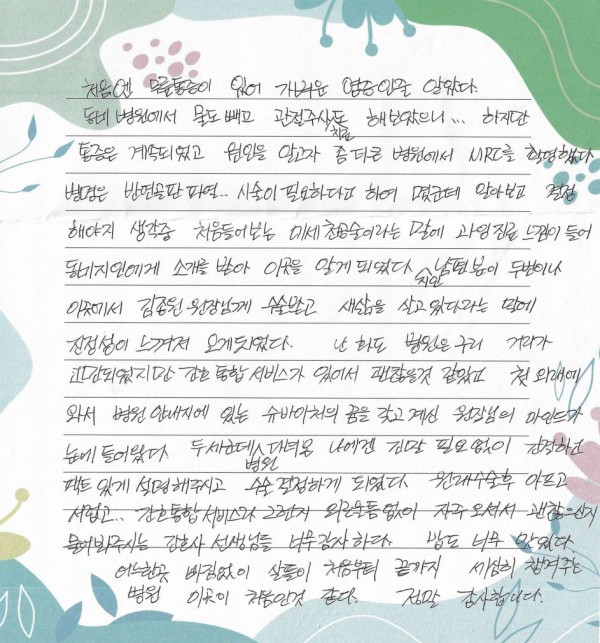 처음엔 무릎통증이 있어 가벼운 염증인줄 알았다.
동네 병원에서 물도 빼고 관절주사도 해보았으나... 하지만
통증은 계속되었고 원인을 알고자 좀 더 큰 병원에서 MRI를 촬영했다
병명은 반월골판 파열.. 시술이 필요하다고 하여 몇군데 알아보고 결정
해야지 생각중 처음들어보는 미세천공술이라는 말에 과잉진료 느낌이 들어
동네지인에게 소개를 받아 이곳을 알게 되었다 지인 남편분이 두번이나
이곳에서 김종원 원장님께 수술받고 새삶을 살고 있다라는 말에
진정성이 느껴져 오게되었다. 난 화도 병원은 구리 거리가
고민되었지만 간호 통합 서비스가 있어서 괜찮을것 같았고 첫 외래에
와서 병원 안내지에 있는 슈바이처의 꿈을 갖고계신 원장님의 마인드가
눈에 들어왔다. 두세군데 병원 다녀온 나에겐 정말 필요없이
팩트 있게 설명해주시고 수술 결정하게 되었다. 원래수술후 아프고
서럽고.. 간호통합서비스라 그런지 외로움 없이 자주 오셔서 괜찮은지
물어봐주시는 간호사 선생님들 너무감사하다. 밥도 너무 맛있다.
어느한곳 빠짐없이 살뜰이 처음부터 끝까지 세심히 챙겨주는
병원 이곳이 처음인것 같다. 정말 감사합니다.